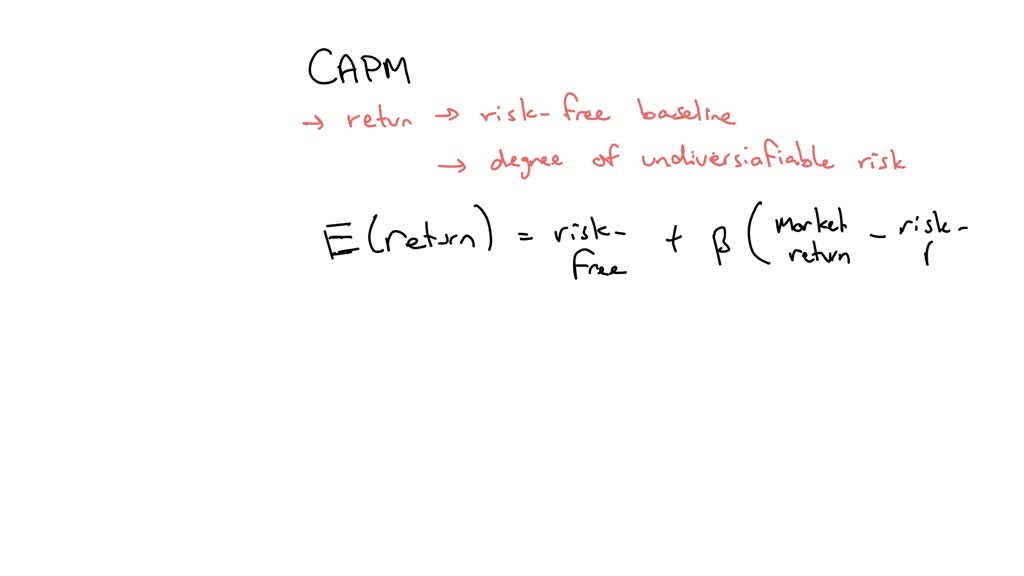 CAPM
→ retun → risk-free baseline
→ degree of undiversiafiable risk
E(return) = risk-free + β (market return - risk-